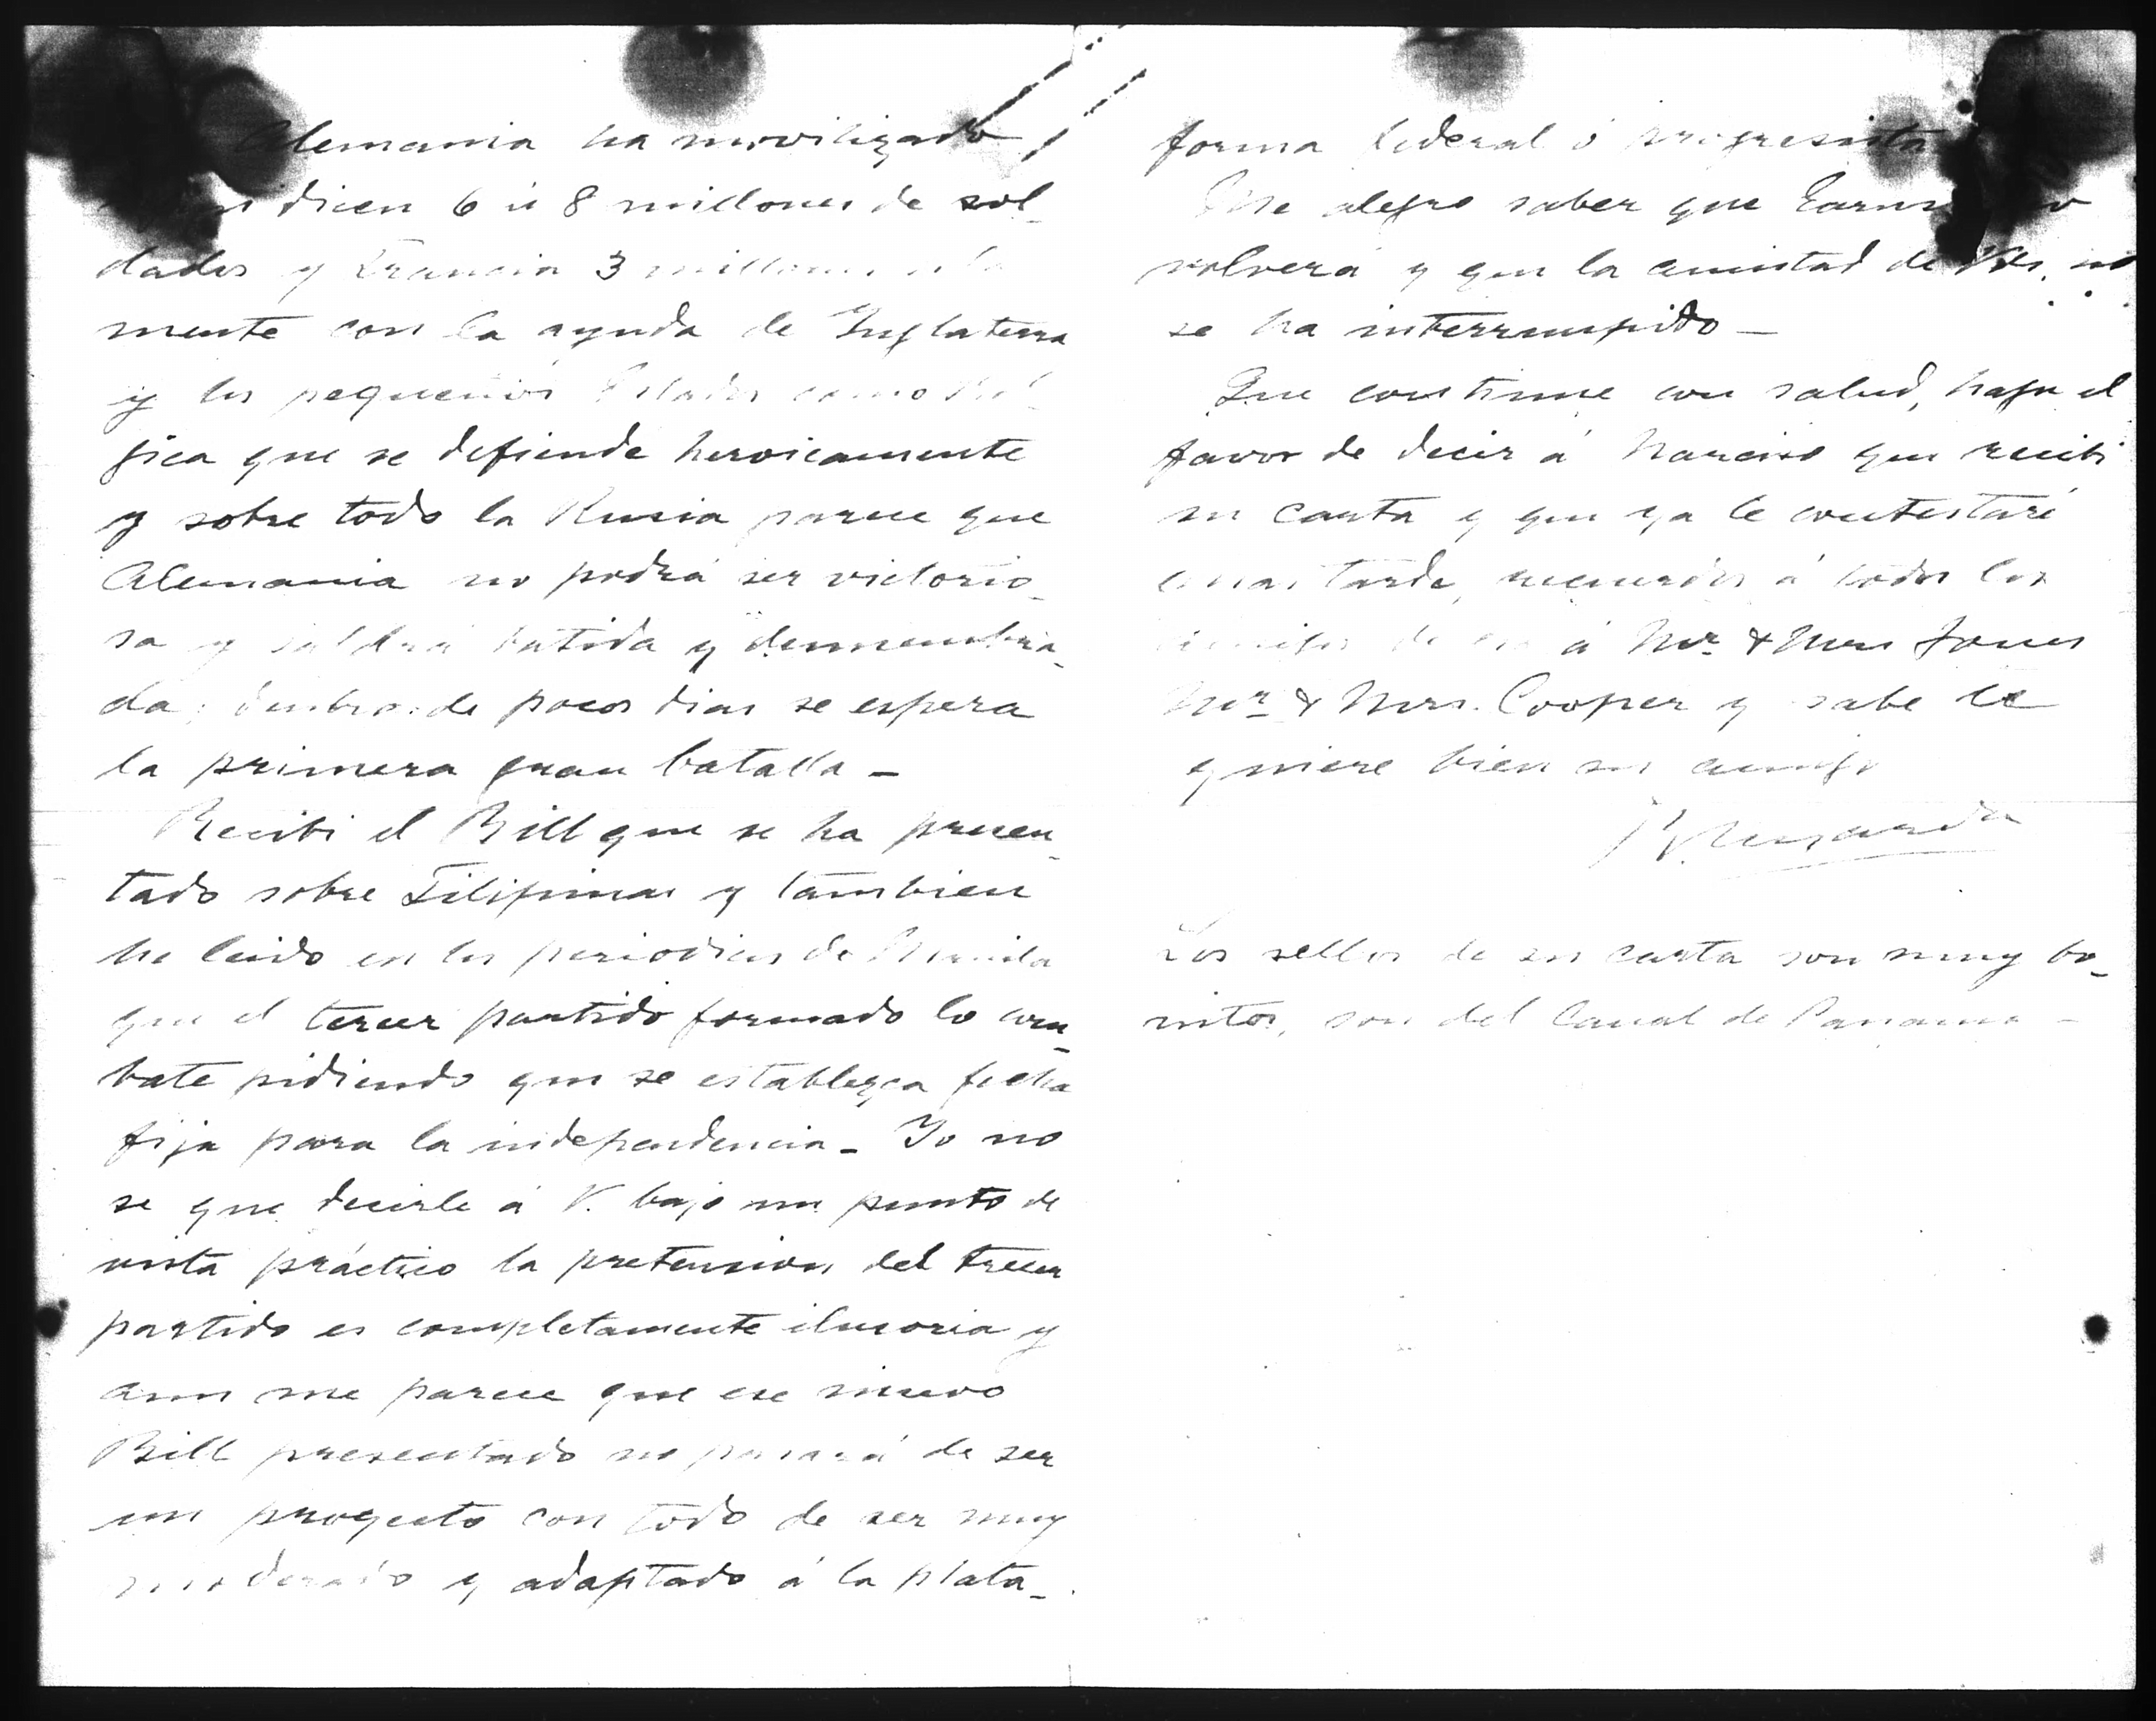 Alemania ha movilizado
dicen 6 ú 8 millones de sol-
dados y Francia 3 millones
mente con la ayuda de Inglaterra
y los pequeños Estados como Bél-
gica que se defiende heroicamente
y sobre todo la Rusia parece que
Alemania no podrá ser victorio-
sa y saldrá batida y desmembra-
da; dentro de pocos dias se espera
la primera gran batalla -
Recibi el Bill que se ha presen-
tado sobre Filipinas y tambien
he leido en los periodicos de Manila
que el tercer partido formado lo com-
bate pidiendo que se establezca fecha
fija para la independencia - Yo no
se que decirle á V. bajo un punto de
vista práctico la pretension del tercer
partido es completamente ilusoria y
aun me parece que ese nuevo
Bill presentado no pasará de ser
un proyecto con todo de ser muy
moderado y adaptado á la plata-
forma federal ó progresista
Me alegro saber que
volverá y que la amistad de Vds. no
se ha interrumpido -
Que continue con salud, haga el
favor de decir á Narciso que recibi
su carta y que ya le contestaré
mas tarde, recuerdos á todos los
amigos de á Mr. & Mrs Jones
Mr. & Mrs. Cooper y sabe le
quiere bien su amigo
Los sellos de su carta son muy bo-
nitos, son del Canal de Panama -